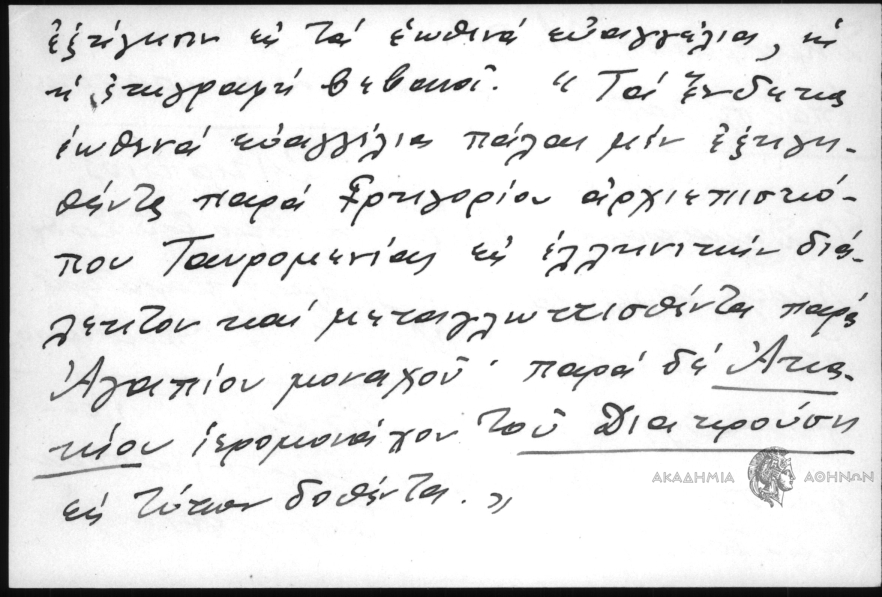 ἐξήγησιν εἰς τά ἑωθινά εὐαγγέλια, ὡς
ἡ ἐπιγραφή βεβαιοῖ. "Τά ἕνδεκα
ἑωθινά εὐαγγέλια πάλαι μέν ἐξηγη-
θέντα παρά Γρηγορίου ἀρχιεπισκό-
που Ταυρομενίας εἰς ἑλληνικήν διά-
λεκτον καί μεταγλωττισθέντα παρά
Ἀγαπίου μοναχοῦ· παρά δέ Ἀκα-
κίου ἱερομονάχου τοῦ Διακρούση
εἰς τύπον δοθέντα."
ΑΚΑΔΗΜΙΑ ΑΘΗΝΩΝ